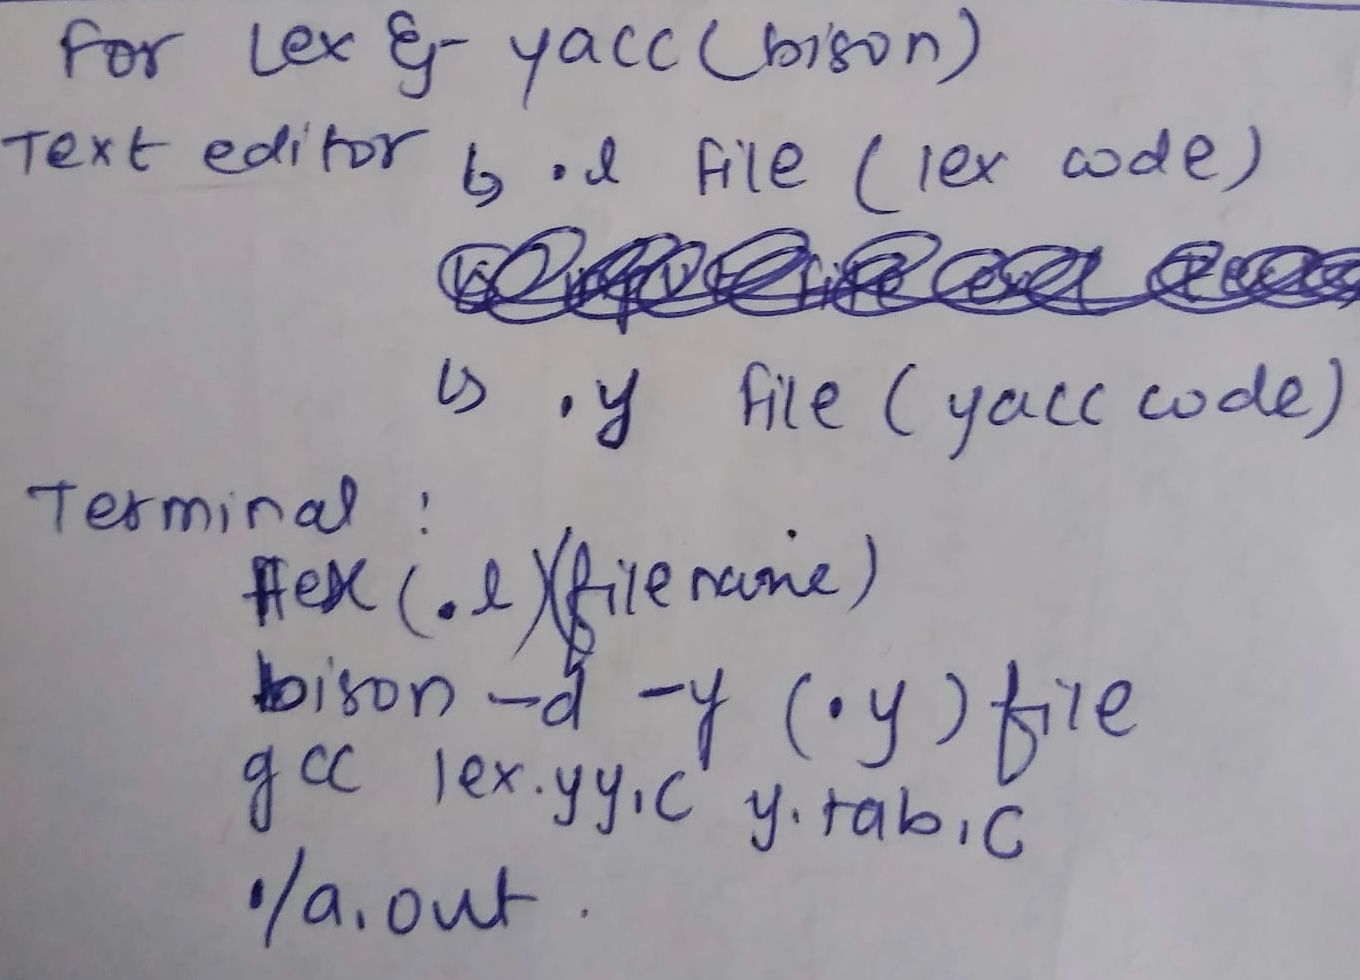 For Lex & yacc (bison)
Text editor ↳ .l file (lex code)
↳ .y file (yacc code)
Terminal :
flex (.l)(filename)
bison -d -y (.y) file
gcc lex.yy.c y.tab.c
./a.out.